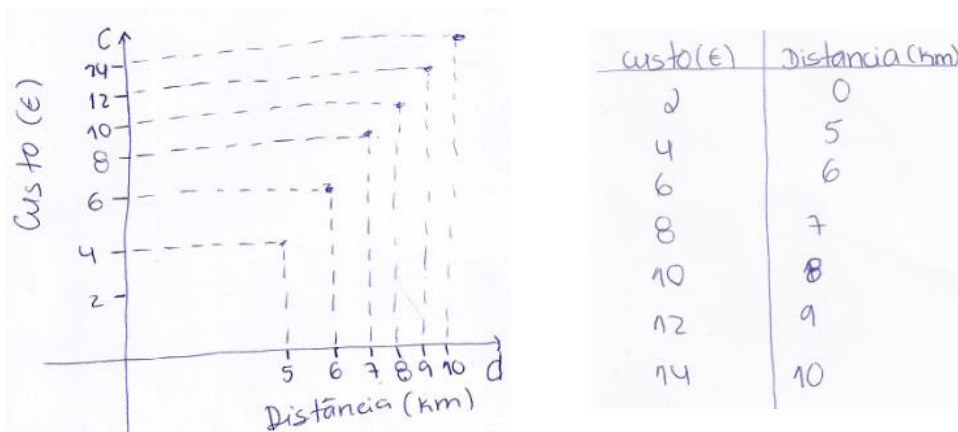 C
14
12
10
8
6
4
2
Custo (€)
5 6 7 8 9 10 d
Distância (km)
custo (€) Distancia (km)
2 0
4 5
6 6
8 7
10 8
12 9
14 10